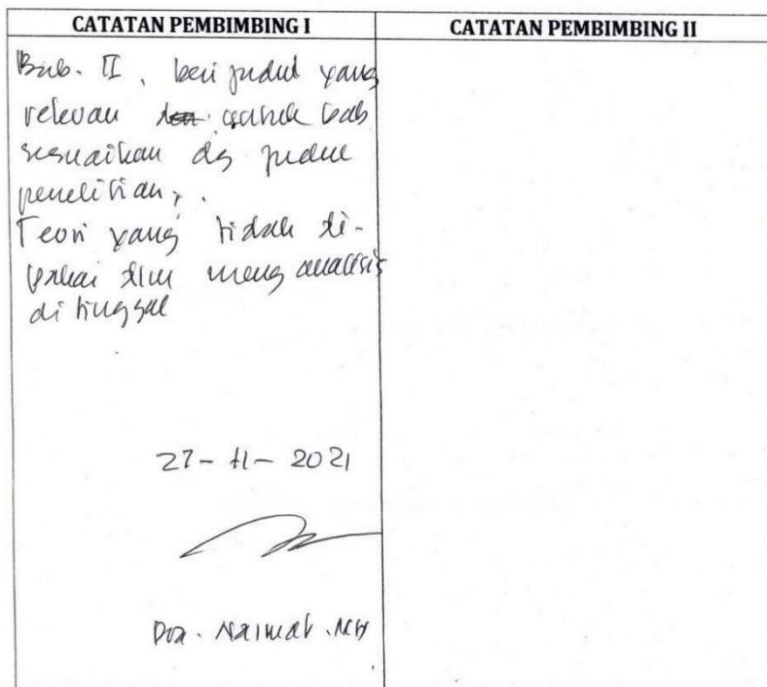 CATATAN PEMBIMBING I
CATATAN PEMBIMBING II
Bab. II, beri judul yang
relevan untuk bab
sesuaikan dg judul
penelitian,.
Teori yang tidak di-
pakai dlm menganalisis
di tinggal
27-11-2021
Dra.